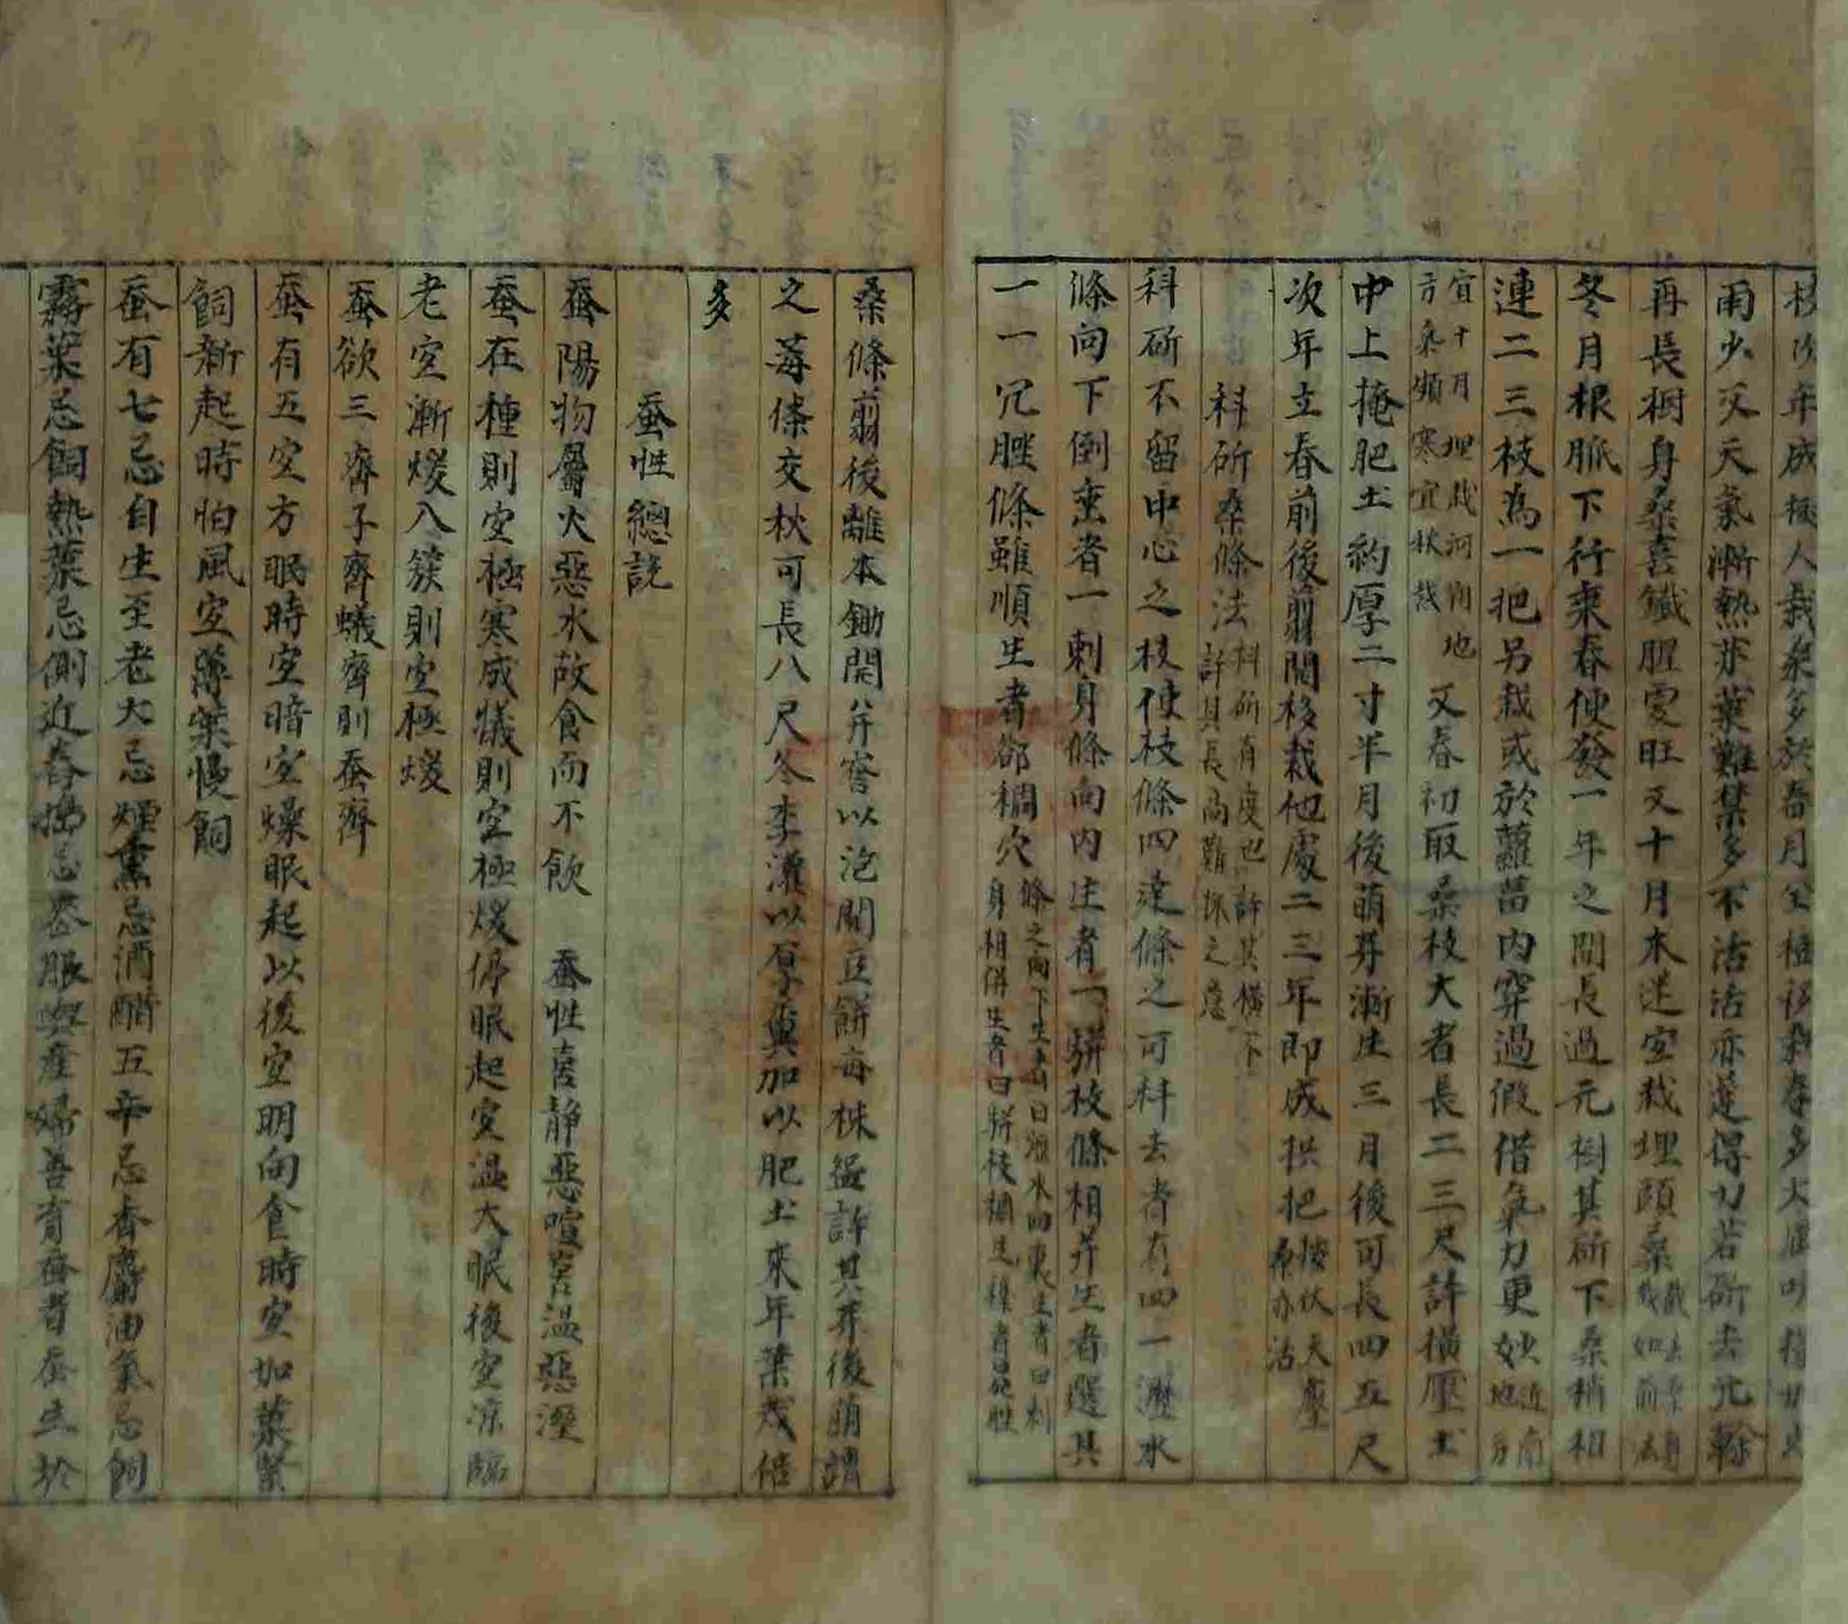 次年成樹人栽桑多於春月全
雨少又天氣漸熱芽葉難禁多不活活亦遲得力若斫去元榦
再長樹身桑喜鐵腥愛旺又十月木迷宜栽埋頭桑
冬月根脈下行乘春便發一年之間長過元樹其斫下桑梢相
連二三枝為一把另栽或於蘿蔔內穿過假借氣力更妙近南地方
宜十月埋栽河朔地方氣頗寒宜秋栽 又春初取桑枝大者長二三尺許橫壓土
中上掩肥土約厚二寸半月後萌芽漸生三月後可長四五尺
次年立春前後剪開移栽他處二三年即成拱把
科斫桑條法科斫有度也許其橫下許其長向難採之意
科斫不留中心之枝使枝條四達條之可科去者有四一瀝水
條向下倒垂者一刺身條向內生者一騈枝條相并生者選其
一一冗脞條雖順生者卻稠穴條之向下生者曰瀝水向裏生者曰刺身相併生者曰騈枝稠
桑條剪後離本鋤開并窖以泡開豆餅每株
之每條交秋可長八尺冬季灌以加以肥土來年葉茂倍
多
蚕性總說
蚕陽物屬火惡水故食而不飲 蚕性喜靜惡喧喜溫惡溼
蚕在種則宜極寒成蟻則宜極煖停眠起宜溫大眠後宜凉臨
老宜漸煖入簇則宜極煖
蚕欲三齊子齊蟻齊則蚕齊
蚕有五宜方眠時宜暗宜燥眠起以後宜明向食時宜加葉緊
飼新起時怕風宜薄葉慢飼
蚕有七忌自生至老大忌煙熏忌酒醋五辛忌香麝油氣忌飼
霧葉忌飼熱葉忌側近舂搗忌喪服與產婦